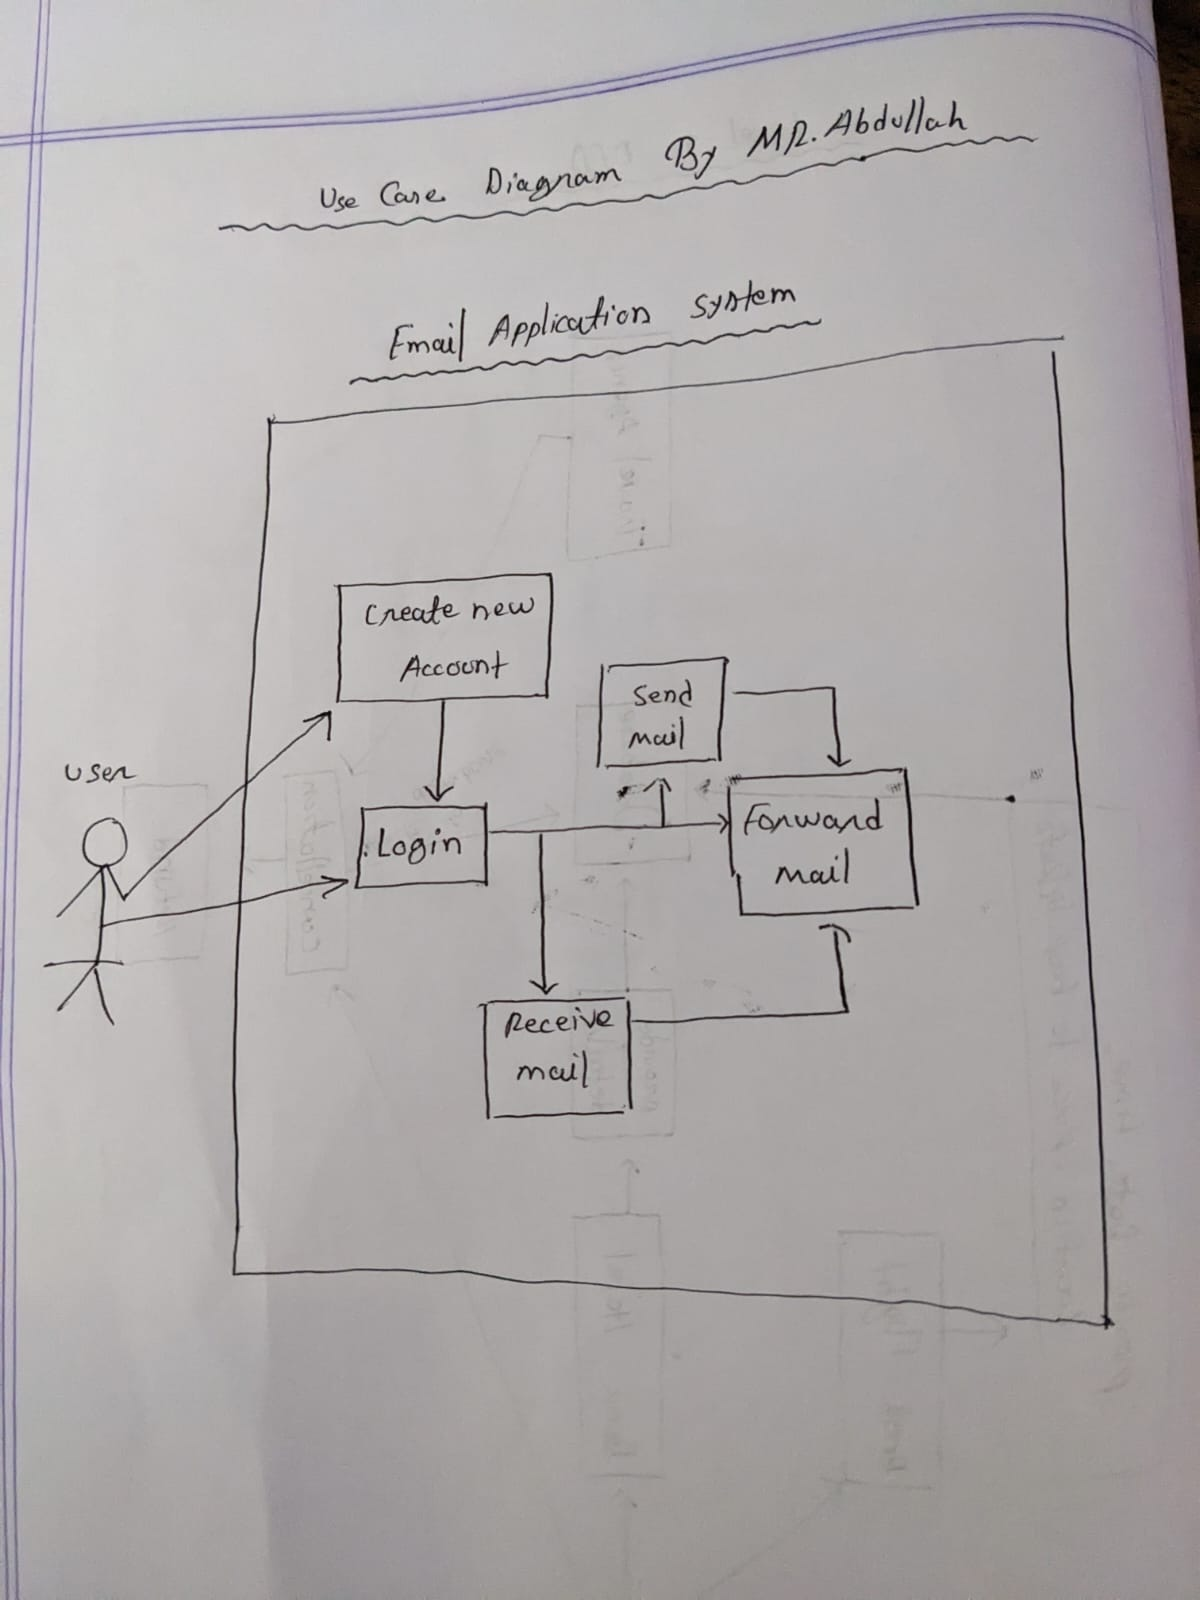 Use Case Diagram By MR. Abdullah
Email Application System
Create new
Account
Send
mail
user
Login
Forward
mail
Receive
mail